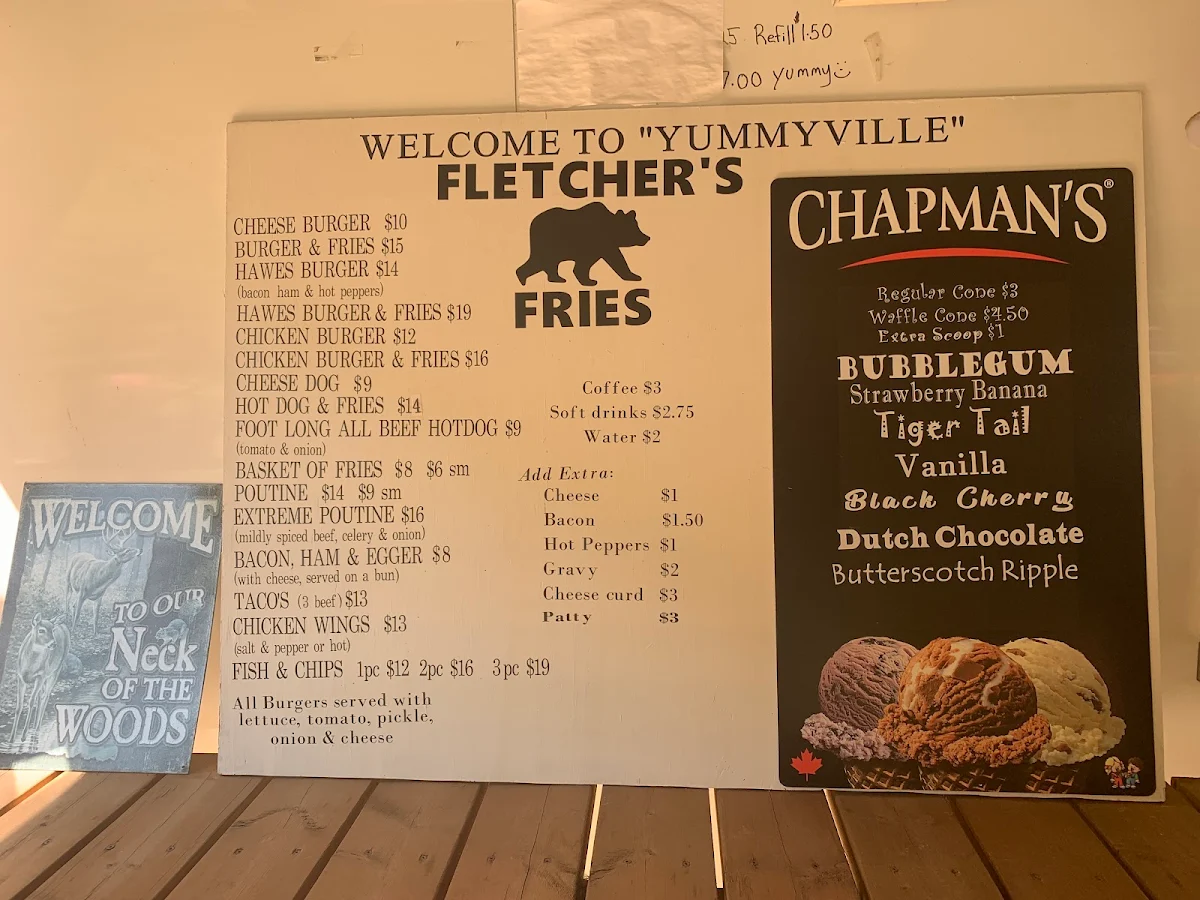 Refill $1.50
Yummy
WELCOME TO "YUMMYVILLE"
FLETCHER'S
FRIES
CHEESE BURGER $10
BURGER & FRIES $15
HAWES BURGER $14
(bacon ham & hot peppers)
HAWES BURGER & FRIES $19
CHICKEN BURGER $12
CHICKEN BURGER & FRIES $16
CHEESE DOG $9
HOT DOG & FRIES $14
FOOT LONG ALL BEEF HOTDOG $9
(tomato & onion)
BASKET OF FRIES $8 $6 sm
POUTINE $14 $9 sm
EXTREME POUTINE $16
(mildly spiced beef, celery & onion)
BACON, HAM & EGGER $8
(with cheese, served on a bun)
TACO'S (3 beef) $13
CHICKEN WINGS $13
(salt & pepper or hot)
FISH & CHIPS 1pc $12 2pc $16 3pc $19
All Burgers served with
lettuce, tomato, pickle,
onion & cheese
Coffee $3
Soft drinks $2.75
Water $2
Add Extra:
Cheese $1
Bacon $1.50
Hot Peppers $1
Gravy $2
Cheese curd $3
Patty $3
CHAPMAN'S®
Regular Cone $3
Waffle Cone $4.50
Extra Scoop $1
BUBBLEGUM
Strawberry Banana
Tiger Tail
Vanilla
Black Cherry
Dutch Chocolate
Butterscotch Ripple
WELCOME
TO OUR
Neck
OF THE
WOODS